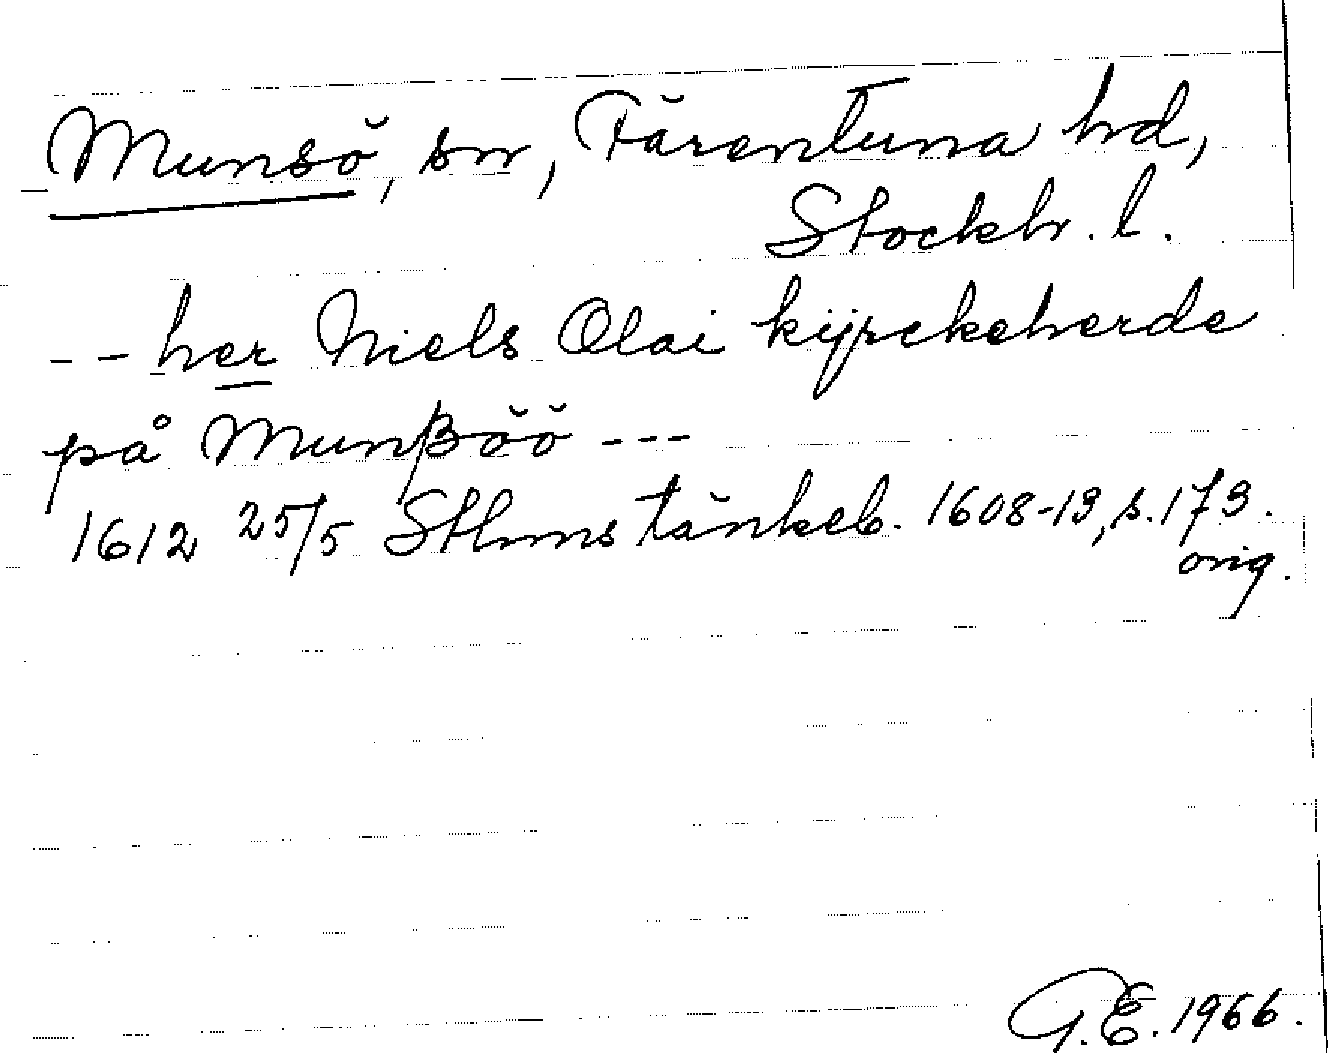 Munsö, sn, Färentuna hd,
Stockh. l.
-- her Niels Olai kijrckeherde
på Munßöö ---
1612 25/5 Sthms tänkeb. 1608-13, s. 173.
orig.
G.E. 1966.